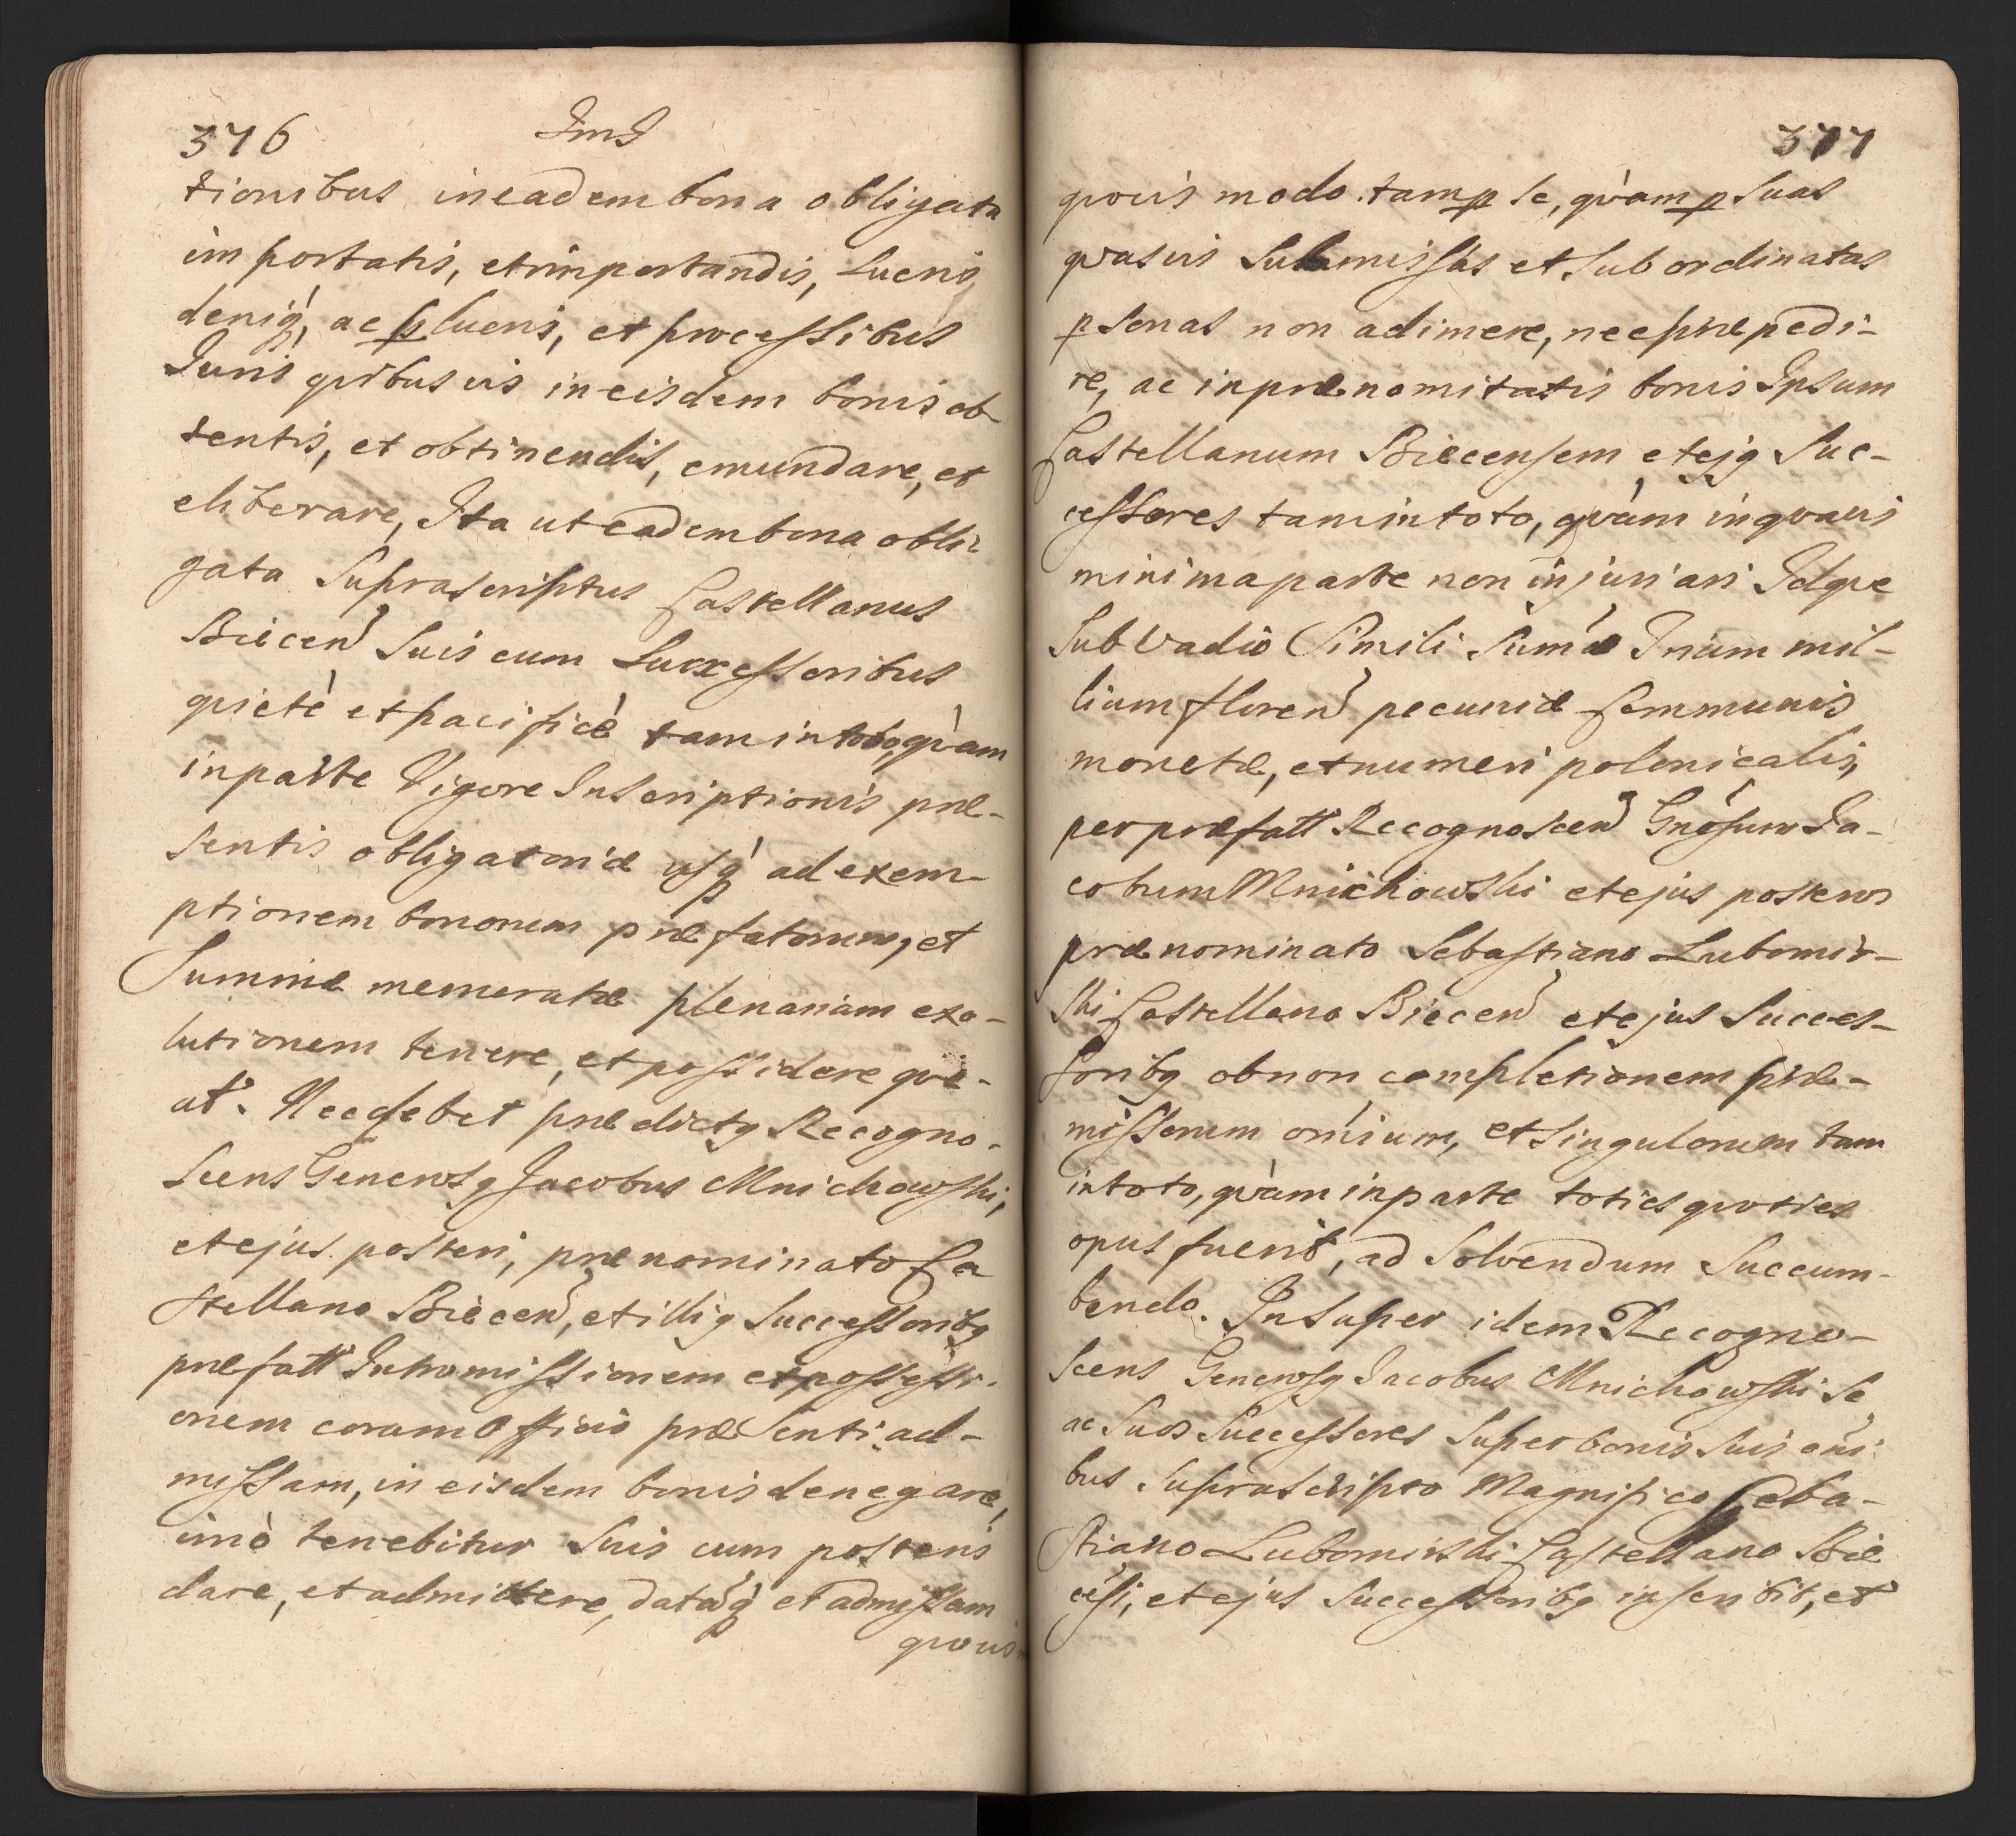 376 ImJ
tionibus in eadem bona obligata
importatis, et importandis, Lucris
deniq́, ac p̱lucris, et processibus
Juris quibusvis in eisdem bonis ob-
tentis, et obtinendis, emundare, et
eliberare, Ita ut eadem bona obli-
gata Suprascriptus Castellanus
Biecen̄ Suis cum Successoribus
quietè et pacificè tam in toto, quàm
in parte Vigore Inscriptionis præ-
sentis obligatoriæ usq́ ad exem-
ptionem bonorum præfatorum, et
Summæ memoratæ plenariam exo-
lutionem tenere, et possidere que-
at. Nec debet prædictq Recogno-
scens Generosq Jacobus Mnichowski,
et ejus posteri, prænominato Ca
stellano Biecen̄, et illiq Successoribq
præfatt Intromissionem et possessi-
onem coram Officio præsenti ad-
missam, in eisdem bonis denegare,
imò tenebitur Suis cum posteris
dare, et admittere, datāq́ et admissam
quovis
377
quovis modo tam p̱ se, quàm p̱ suas
quasvis Submissas et Subordinatas
p̱sonas non adimere, nec præpedi-
re, ac in prænomitatis bonis Ipsum
Castellanum Biecensem et ejq Suc-
cessores tam in toto, quàm in quavis
minima parte non injuriari Idque
Sub Vadio Simili Sum̄æ Trium mil-
lium floren̄ pecuniæ Communis
monetæ, et numeri polonicalis,
per præfatt Recognoscen̄ Gnōsum Ja-
cobum Mnichowski et ejus posteros
prænominato Sebastiano Lubomir-
ski Castellano Biecen̄ et ejus Succes-
soribq ob non completionem præ-
missorum om̄ium, et singulorum tam
in toto, quàm in parte toties quoties
opus fuerit, ad Solvendum Succum-
bendo. In Super idem Recogno-
scens Generosq Jacobus Mnichowski Se
ac Suos Successores Super bonis Suis om̄i
bus Suprascripto Magnifico Seba-
stiano Lubomirski Castellano Bie
cēsi, et ejus Successoribq inscribit, et